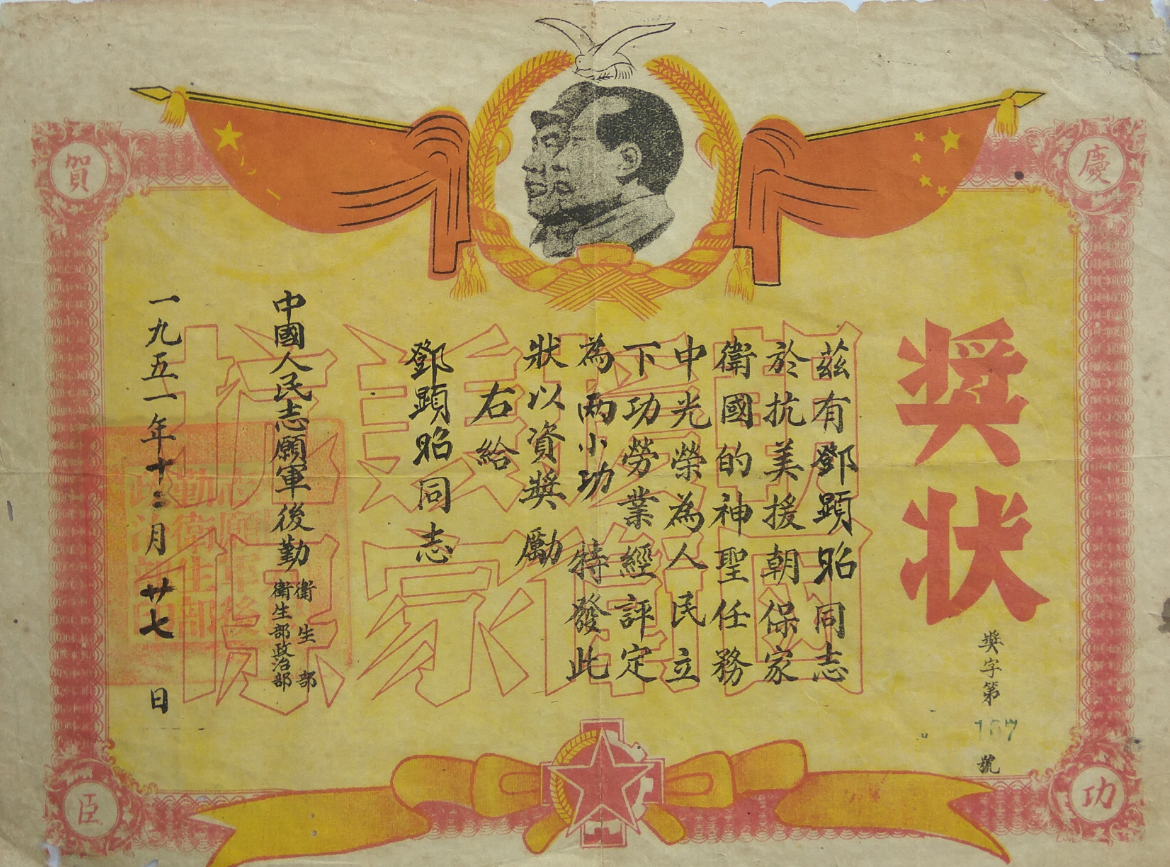 慶
賀
功
臣
奬状
奬字第167號
茲有鄧顕昭同志
於抗美援朝保家
衛國的神聖任務
中光榮為人民立
下功勞業經評定
為兩小功 特發此
狀以資奬勵
右給
鄧顕昭同志
中國人民志願軍後勤
衛生部
衛生部政治部
一九五一年十二月廿七日
抗美援朝
保家衛國
志願軍後
勤衛生部
政治部印